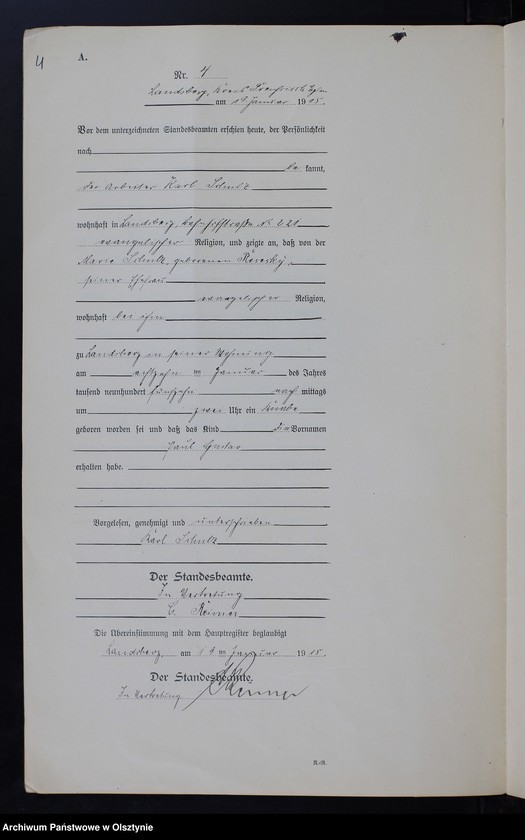 4
A.
Nr. 4
Landsberg, Kreis
am 19 Januar 1915.
Vor dem unterzeichneten Standesbeamten erschien heute, der Persönlichkeit
nach
be kannt,
der Arbeiter Karl Schulz
wohnhaft in Landsberg, Bahnhofstraße No 221
evangelischer Religion, und zeigte an, daß von der
Marie Schulz, geborenen
seiner Ehefrau
evangelischer Religion,
wohnhaft bei ihm
zu Landsberg in seiner Wohnung
am achtzehn ten Januar des Jahres
tausend neunhundert fünfzehn nach mittags
um zwei Uhr ein Knabe
geboren worden sei und daß das Kind die Vornamen
Paul Gustav
erhalten habe.
Vorgelesen, genehmigt und unterschrieben
Karl Schulz
Der Standesbeamte.
In Vertretung
Reimer
Die Übereinstimmung mit dem Hauptregister beglaubigt
Landsberg, am 19 ten Januar 1915.
Der Standesbeamte.
In Vertretung Reimer
Archiwum Państwowe w Olsztynie